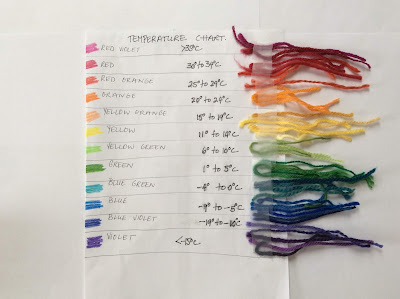 TEMPERATURE CHART.
RED VIOLET >35°C
RED 30° to 34°C
RED ORANGE 25° to 29°C
ORANGE 20° to 24°C
YELLOW ORANGE 15° to 19°C
YELLOW 11° to 14°C
YELLOW GREEN 6° to 10°C
GREEN 1° to 5°C
BLUE GREEN -4° to 0°C
BLUE -9° to -5°C
BLUE VIOLET -14° to -10°C
VIOLET <-15°C